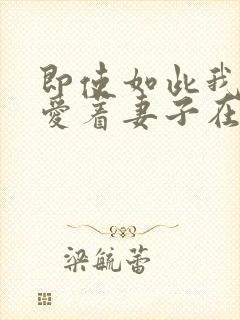 即使如此我
爱着妻子在
梁毓蕾